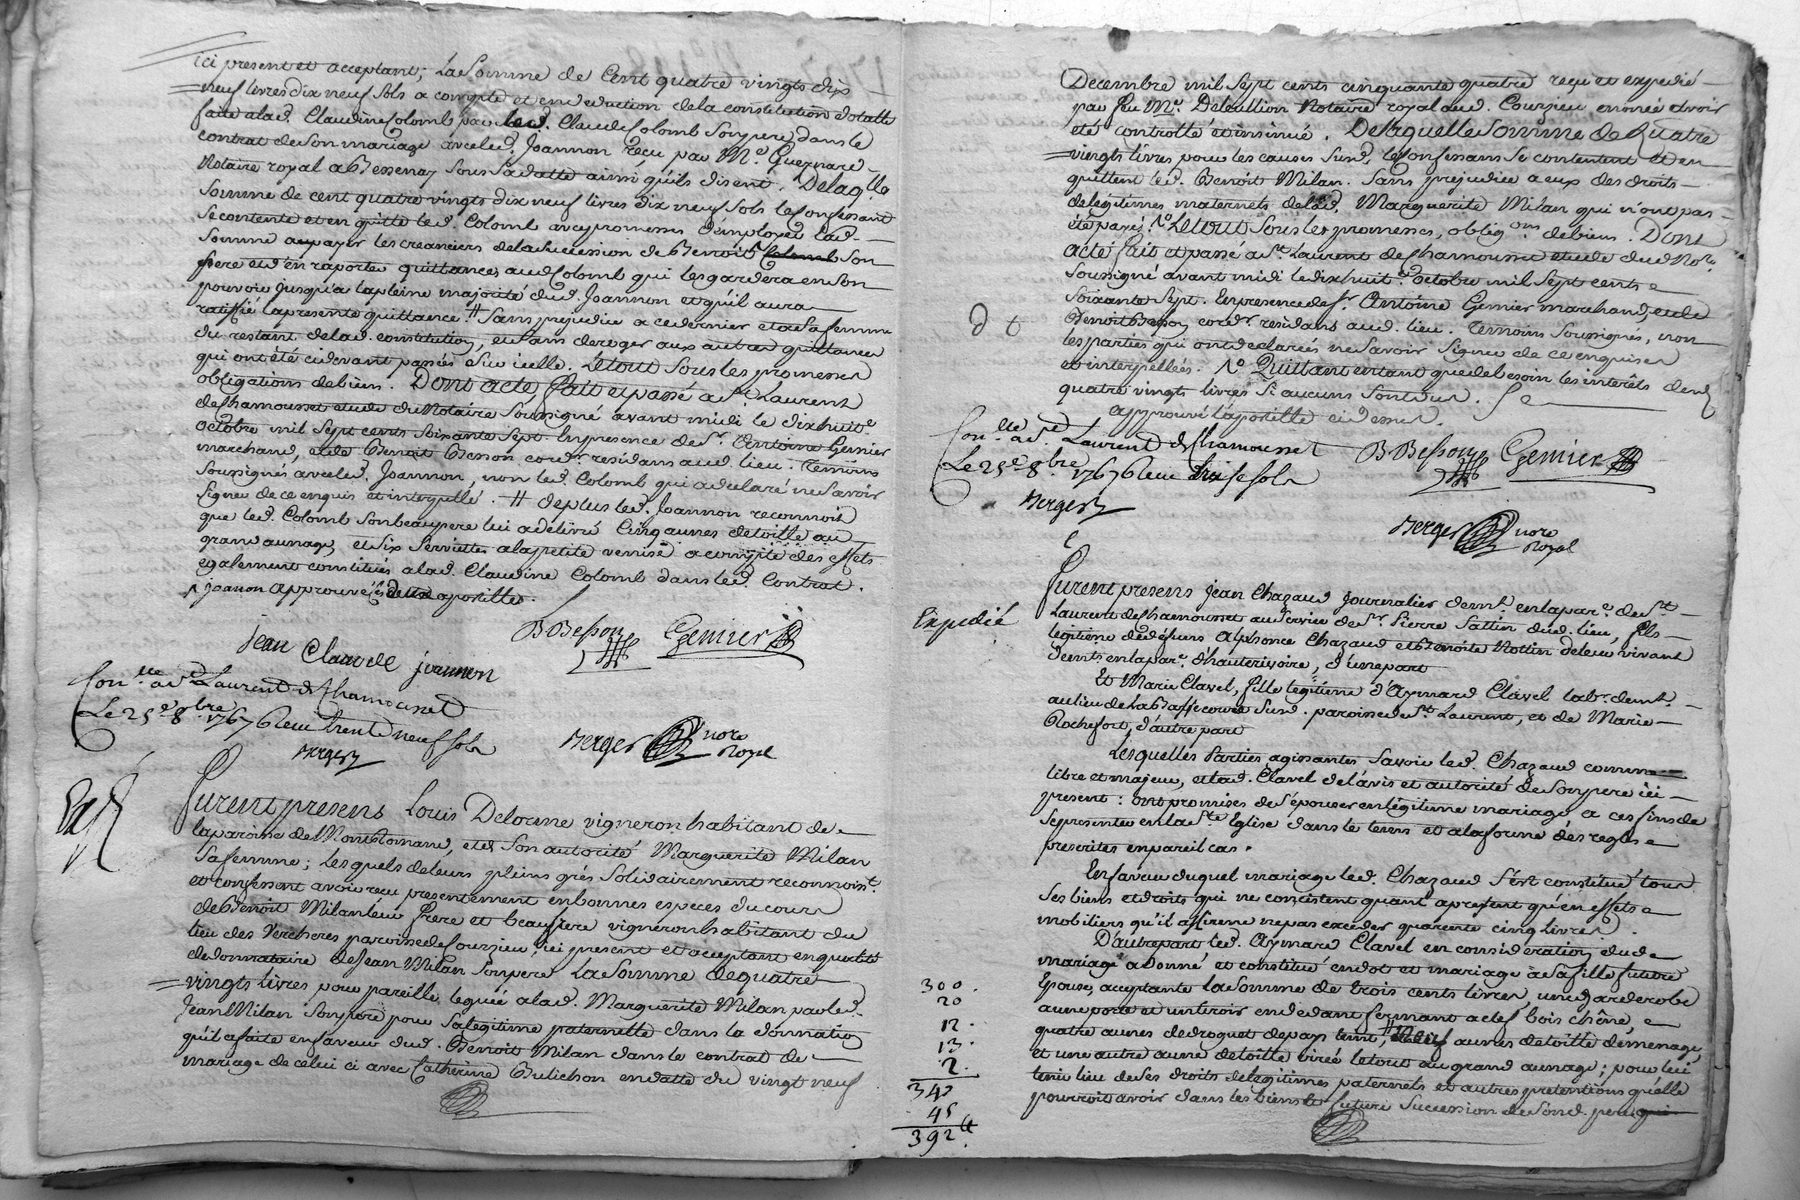 ici present et acceptant; La Somme de Cent quatre vingts dix
neuf livres dix neuf sols a compte et en deduction de la constitution dotalle
faite a lad. Claudine Colomb par led. Claude Colomb Son pere dans le
contrat de Son mariage avec led. Joannon reçu par Me. Guernare
Notaire royal a Bessenay Sous Sa datte ainsi qu'ils disent. De laqlle
Somme de cent quatre vingts dix neuf livres dix neuf Sols le Confessant
Se contente et en quitte led. Colomb avec promesse d'employer lad.
Somme a payer les creanciers de la Succession de Benoit Colomb Son
pere et d'en raporter quittances aud. Colomb qui les gardera en Son
pouvoir jusqu'a la pleine majorité dud. Joannon et qu'il aura
ratiffié la presente quittance # Sans prejudice a ce dernier et a Sa femme
du restant de lad. constitution, et Sans deroger aux autres quittances
qui ont été cidevant passées Sur icelle. Le tout Sous les promesses
obligations de biens. Dont acte fait et passé a St. Laurent
de Chamousset etude du Notaire Soussigné avant midi le dixhuite
octobre mil Sept cents Soixante Sept. En presence de Sr. Antoine Gemier
marchand, et de Benoit Besson cordr. residans aud. lieu. Temoins
Soussignés avec led. Joannon, non led. Colomb qui a declaré ne Savoir
Signer de ce enquis et interpellé. # de plus led. Joannon reconnoit
que led. Colomb Son beaupere lui a delivré Cinq aunes de toille au
grand aunage, et Six Serviettes a la petite venise a compte des effets
egalement constitués a lad. Claudine Colomb dans led. Contrat.
joanon approuvé les deux apostilles.
jean Claude joannon
B Besson
Gemier
Con.lle a St. Laurent de Chamousset
Le 25e 8bre 1767 Reçu trente neuf sols
Berger
Berger nore Royal
Furent presens Louis Delorme vigneron habitant de
la paroisse de Montromand, et de Son autorité Marguerite Milan
Sa femme; Lesquels de leurs pleins grés Solidairement reconnoist.
et confessent avoir reçu presentement en bonnes especes du cours
de Benoit Milan leur frere et beaufrere vigneron habitant du
lieu des Vercheres paroisse de Courzieu, ici present et acceptant en qualité
de donnataire de Jean Milan Son pere La Somme de quatre
vingts livres pour pareille leguée a lad. Marguerite Milan par led.
Jean Milan Son pere pour Sa legitime paternelle dans la donnation
qu'il a faite en faveur dud. Benoit Milan dans le contrat de
mariage de celui ci avec Catherine Bulichon en datte du vingt neuf
Decembre mil Sept cents cinquante quatre reçu et expedié
par feu Me. Delaullion Notaire royal aud. Courzieu enoncé avoir
été controllé et insinué. De laquelle Somme de Quatre
vingts livres pour les causes Susd. les Confessans Se contentent et en
quittent led. Benoit Milan. Sans prejudice a eux des droits
de legitimes maternels de lad. Marguerite Milan qui n'ont pas
été payés. No Le tout Sous les promesses, obligons de biens. Dont
acte fait et passé a St. Laurent de Chamousset etude dud. Nore.
Soussigné avant midi le dixhuite. octobre mil Sept cents
Soixante Sept. En presence de Sr. Antoine Gemier marchand, et de
Benoit Besson cordr. residans aud. lieu. Temoins Soussignés, non
les parties qui ont declarées ne Savoir Signer de ce enquises
et interpellées. No Quittant entant que de besoin les interêts desd.
quatre vingt livres Si aucuns Sont dus.
approuvé l'apostille cidessus.
d t
Con.lle a St. Laurent de Chamousset
Le 25e 8bre 1767 Reçu treise sols
Berger
B Besson
Gemier
Berger nore Royal
Expedié
Furent presens Jean Chazaud Journalier demt. en la pare. de St.
Laurent de Chamousset au Service de Sr. Pierre Sattin dud. lieu, fils
legitime de defuns Alphonce Chazaud et Benoite Nottin de leur vivant
demts. en la pare. d'hauterivoire, d'une part
Et Marie Clavel, fille legitime d'Aymard Clavel labr. demt.
au lieu de la Baffe cour Susd. paroisse de St. Laurent, et de Marie
Rochefort, d'autre part
Lesquelles Parties agissantes Savoir led. Chazaud comme
libre et majeur, et lad. Clavel de l'avis et autorité de Son pere ici
present: ont promises de S'épouser en légitime mariage a ces fins de
Se presenter en la Ste. Eglise dans le tems et a la forme des regles
prescrites en pareil cas.
En faveur duquel mariage led. Chazaud S'est constitué tous
Ses biens et droits qui ne concistent quant a present qu'en effets
mobiliers qu'il affirme ne pas exceder quarente cinq livres.
D'autre part led. Aymard Clavel en consideration dud.
mariage a donné et constitué en dot et mariage a Sa fille future
Epouse, acceptante la Somme de trois cents livres, une garderobe
a une porte et un tiroir en dedant fermant a clef bois chêne,
quatre aunes de droguet de pays teint, # Neuf aunes de toille de menage,
et une autre aune de toille virée le tout au grand aunage; pour lui
tenir lieu de Ses droits de legitimes paternels et autres pretentions qu'elle
pourroit avoir dans les biens et future Succession de Sond. pere
300.
20
12.
13.
2.
347
45
392 tt